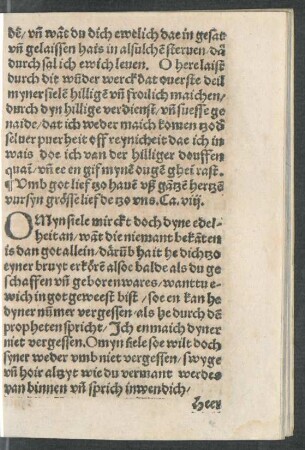 dē/ vñ wāt du dich ewelich dae in gesat
vñ gelaissen hais in alsulchē sternen/ dā
durch sal ich ewich leuen. O here laist
durch dit wūder werck dat ouerste deil
myner sielē hilligē vñ froilich maichen/
durch dyn hillige verdienst/ vñ suesse ge
naide/ dat ich weder maich komen tzod
seluer puerheit off reynicheit dae ich in
wais doe ich van der hilliger douffen
quaī/ vñ ee en gif mynē ougē ghei rast.
¶ Vmb got lief tzo hauē vß gātzē hertzē
vur syn grōsse lief de tzo vns. Ca. viij.
O Myn siele mirckt doch dyne edel-
heit an/ wāt die niemant bekāten
is dan got allein/ darūb hait he dich tzo
eyner bruyt erkōrē alsoe balde als du ge
schaffen vñ geboren wares/ want tu e-
wich in got geweest bist/ soe en kan he
dyner nūmer vergessen/ als he durch dē
propheten spricht/ Ich en maich dyner
niet vergessen. O myn siele soe wilt doch
syner weder vmb niet vergessen/ swyge
vñ hoir altzyt wie du vermant werdes
van binnen vñ sprich inwendich/
Heer